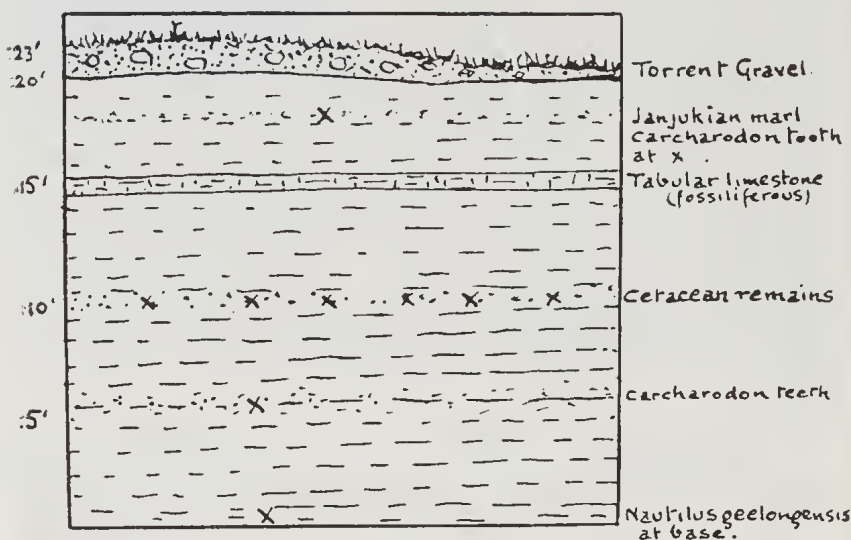 :23'
:20'
Torrent Gravel.
Janjukian marl
carcharodon teeth
at x.
:15'
Tabular limestone
(fossiliferous)
:10'
Cetacean remains
carcharodon teeth
:5'
Nautilus geelongensis
at base.